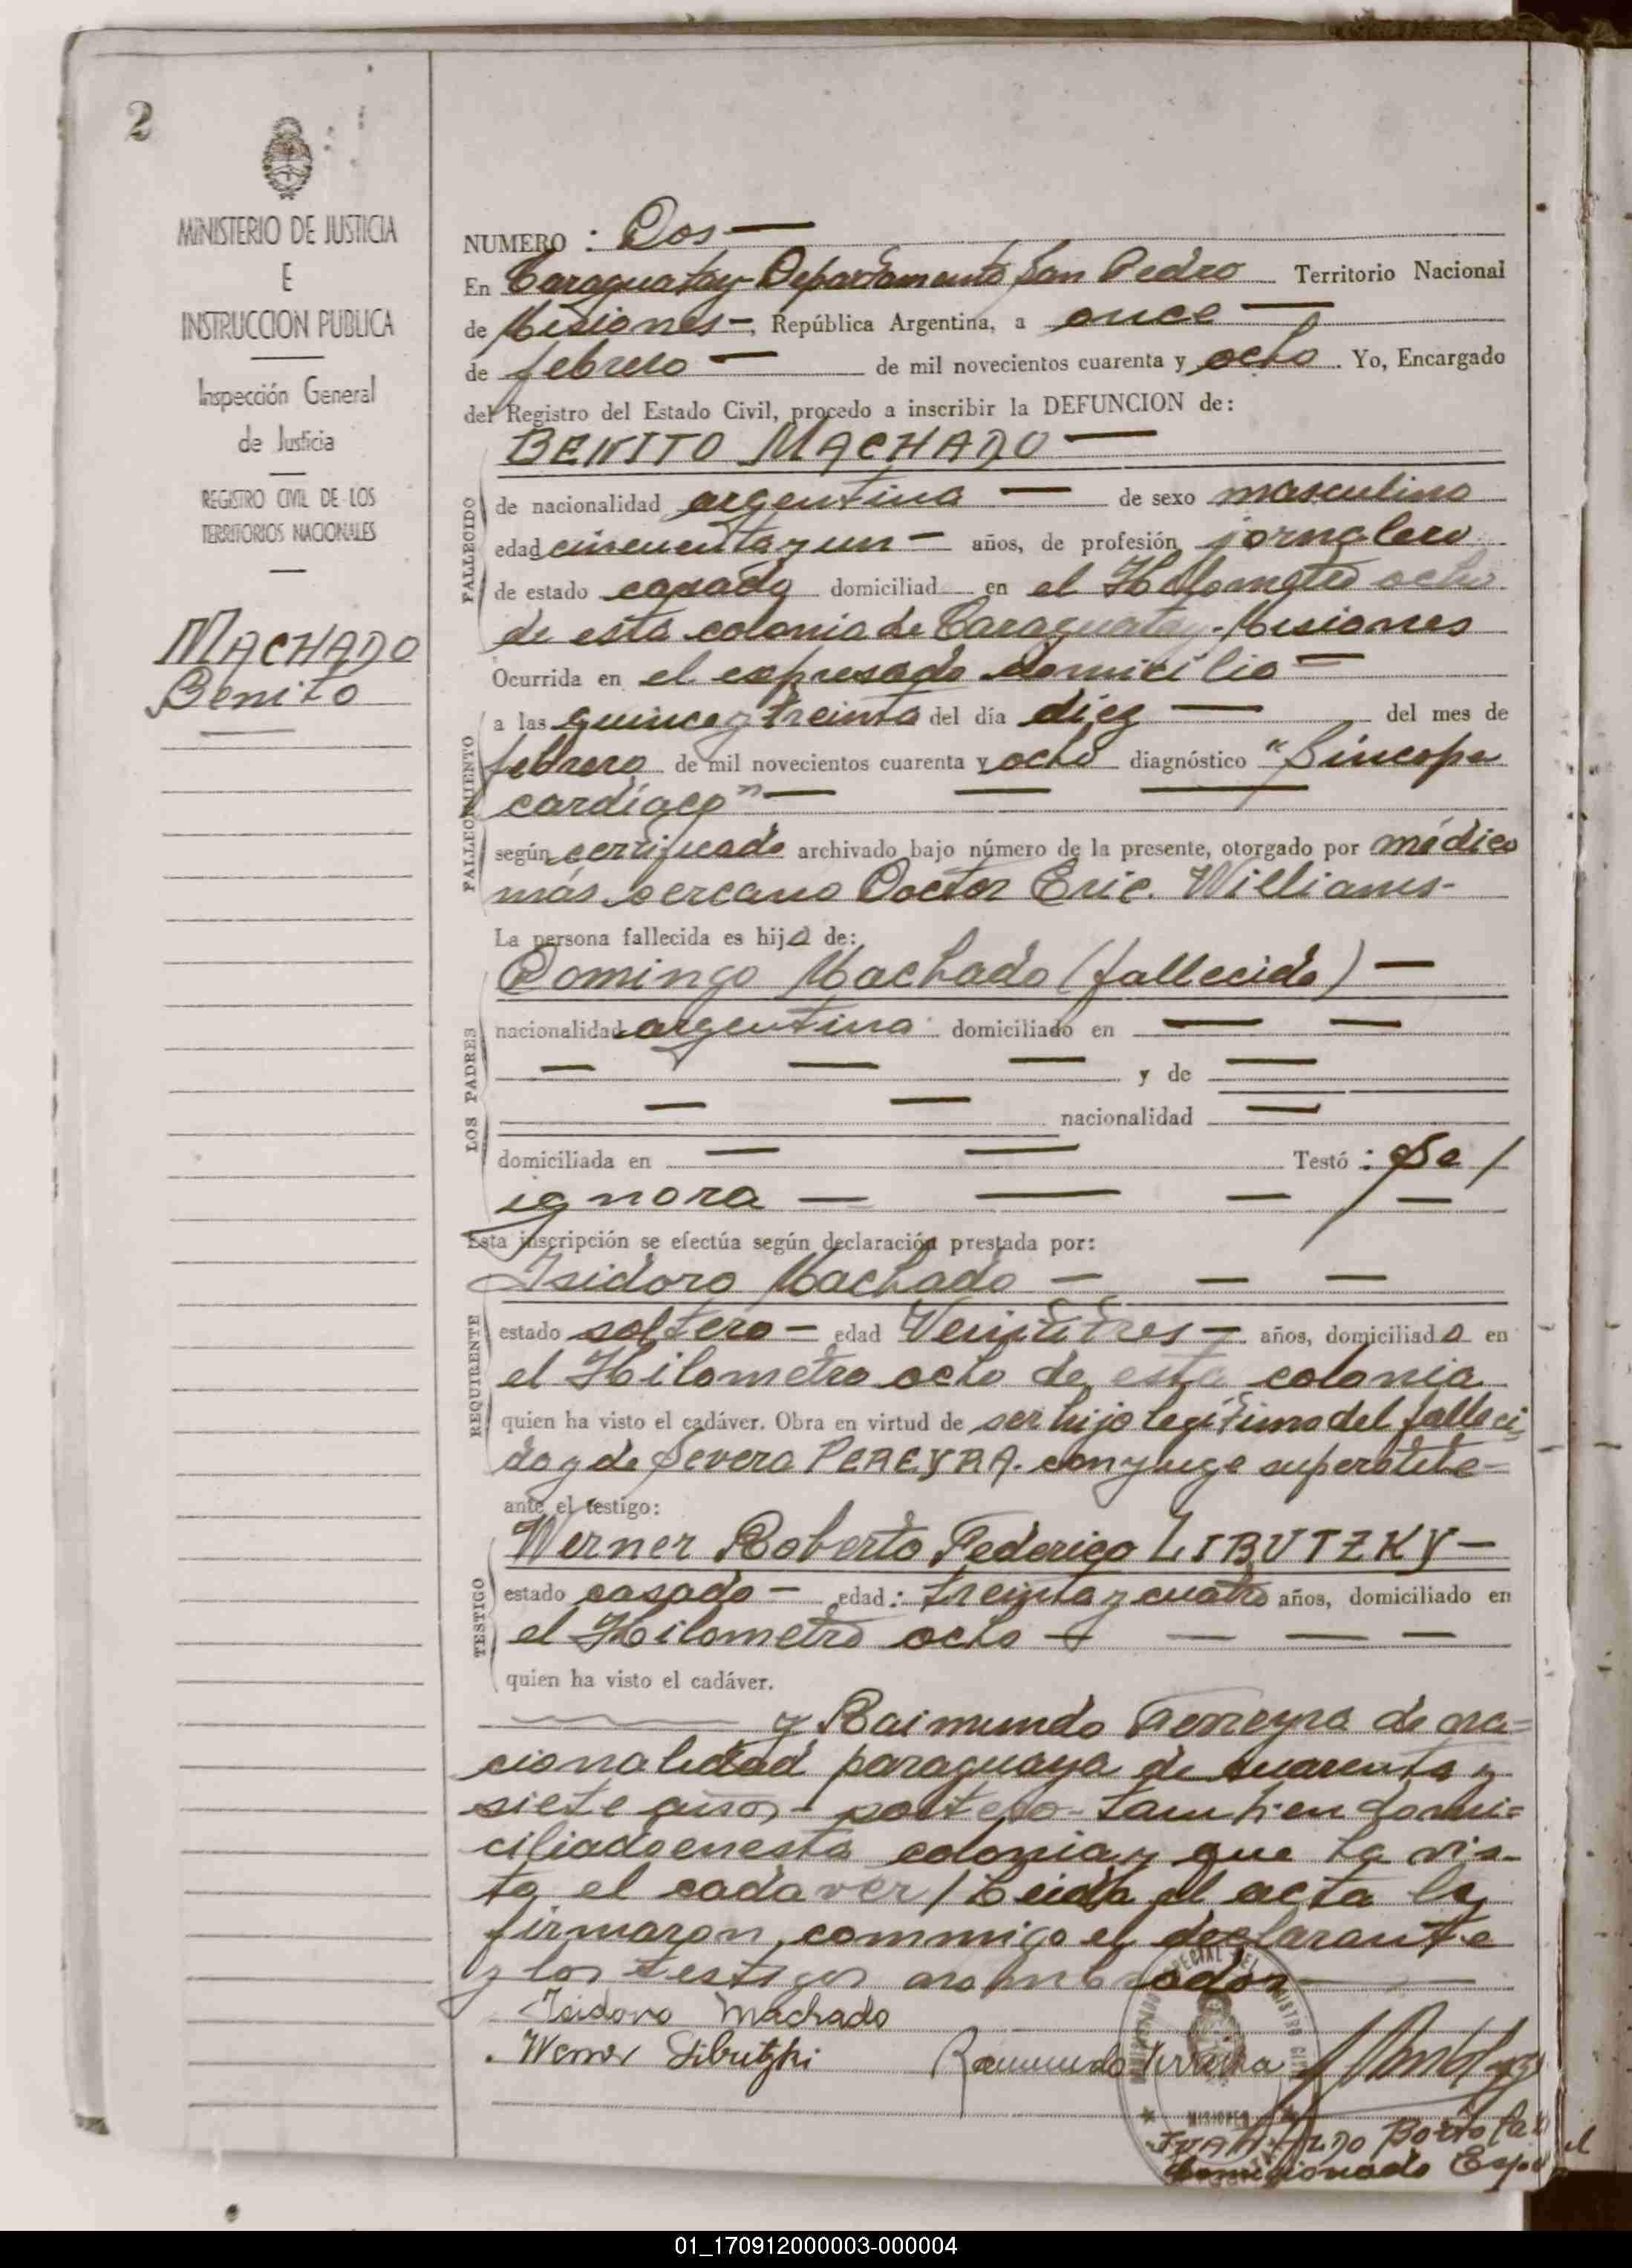 2
MINISTERIO DE JUSTICIA
E
INSTRUCCION PUBLICA
Inspección General
de Justicia
REGISTRO CIVIL DE LOS
TERRITORIOS NACIONALES
MACHADO
Benito
NUMERO : Dos —
En Caraguatay - Departamento San Pedro Territorio Nacional
de Misiones -, República Argentina, a once —
de febrero — de mil novecientos cuarenta y ocho. Yo, Encargado
del Registro del Estado Civil, procedo a inscribir la DEFUNCION de:
BENITO MACHADO —
FALLECIDO
de nacionalidad argentina — de sexo masculino
edad cincuenta y un — años, de profesión jornalero
de estado casado domiciliad en el Kilometro ocho
de esta colonia de Caraguatay - Misiones
Ocurrida en el expresado domicilio —
FALLECIMIENTO
a las quince y treinta del día diez — del mes de
febrero de mil novecientos cuarenta y ocho diagnóstico "Síncope
cardíaco" — — —
según certificado archivado bajo número de la presente, otorgado por médico
más cercano Doctor Eric. Williams -
La persona fallecida es hijo de:
LOS PADRES
Domingo Machado (fallecido) —
nacionalidad argentina domiciliado en — —
— — — y de —
— — nacionalidad —
domiciliada en — — Testó : Se /
ignora — — — / —
Esta inscripción se efectúa según declaración prestada por:
REQUIRENTE
Isidoro Machado — — —
estado soltero — edad Veintitres — años, domiciliado en
el Kilometro ocho de esta colonia
quien ha visto el cadáver. Obra en virtud de ser hijo legítimo del falleci-
do y de Severa PEREYRA. conyuge superstite -
ante el testigo:
TESTIGO
Werner Roberto Federico LIBUTZKY —
estado casado — edad: treinta y cuatro años, domiciliado en
el Kilometro ocho — — — —
quien ha visto el cadáver.
y Raimundo Ferreyra de na=
cionalidad paraguaya de cuarenta y
siete años - soltero - tambien domi=
ciliado en esta colonia y que ha vis-
to el cadaver / Leida el acta la
firmaron, commigo el declarante
y los testigos nombrados —
Isidoro Machado
Werner Libutzki Raimundo Ferreira
MISIONES
JUAN
Comisionado Especial
01_170912000003-000004